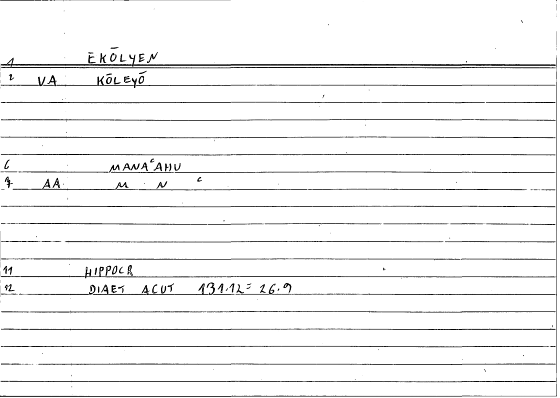 1 EKŌLYEN
2 VA KŌLEYŌ
6 MANAʿAHU
7 AA M N ʿ
11 HIPPOCR
12 DIAET ACUT 131.12 = 26.9